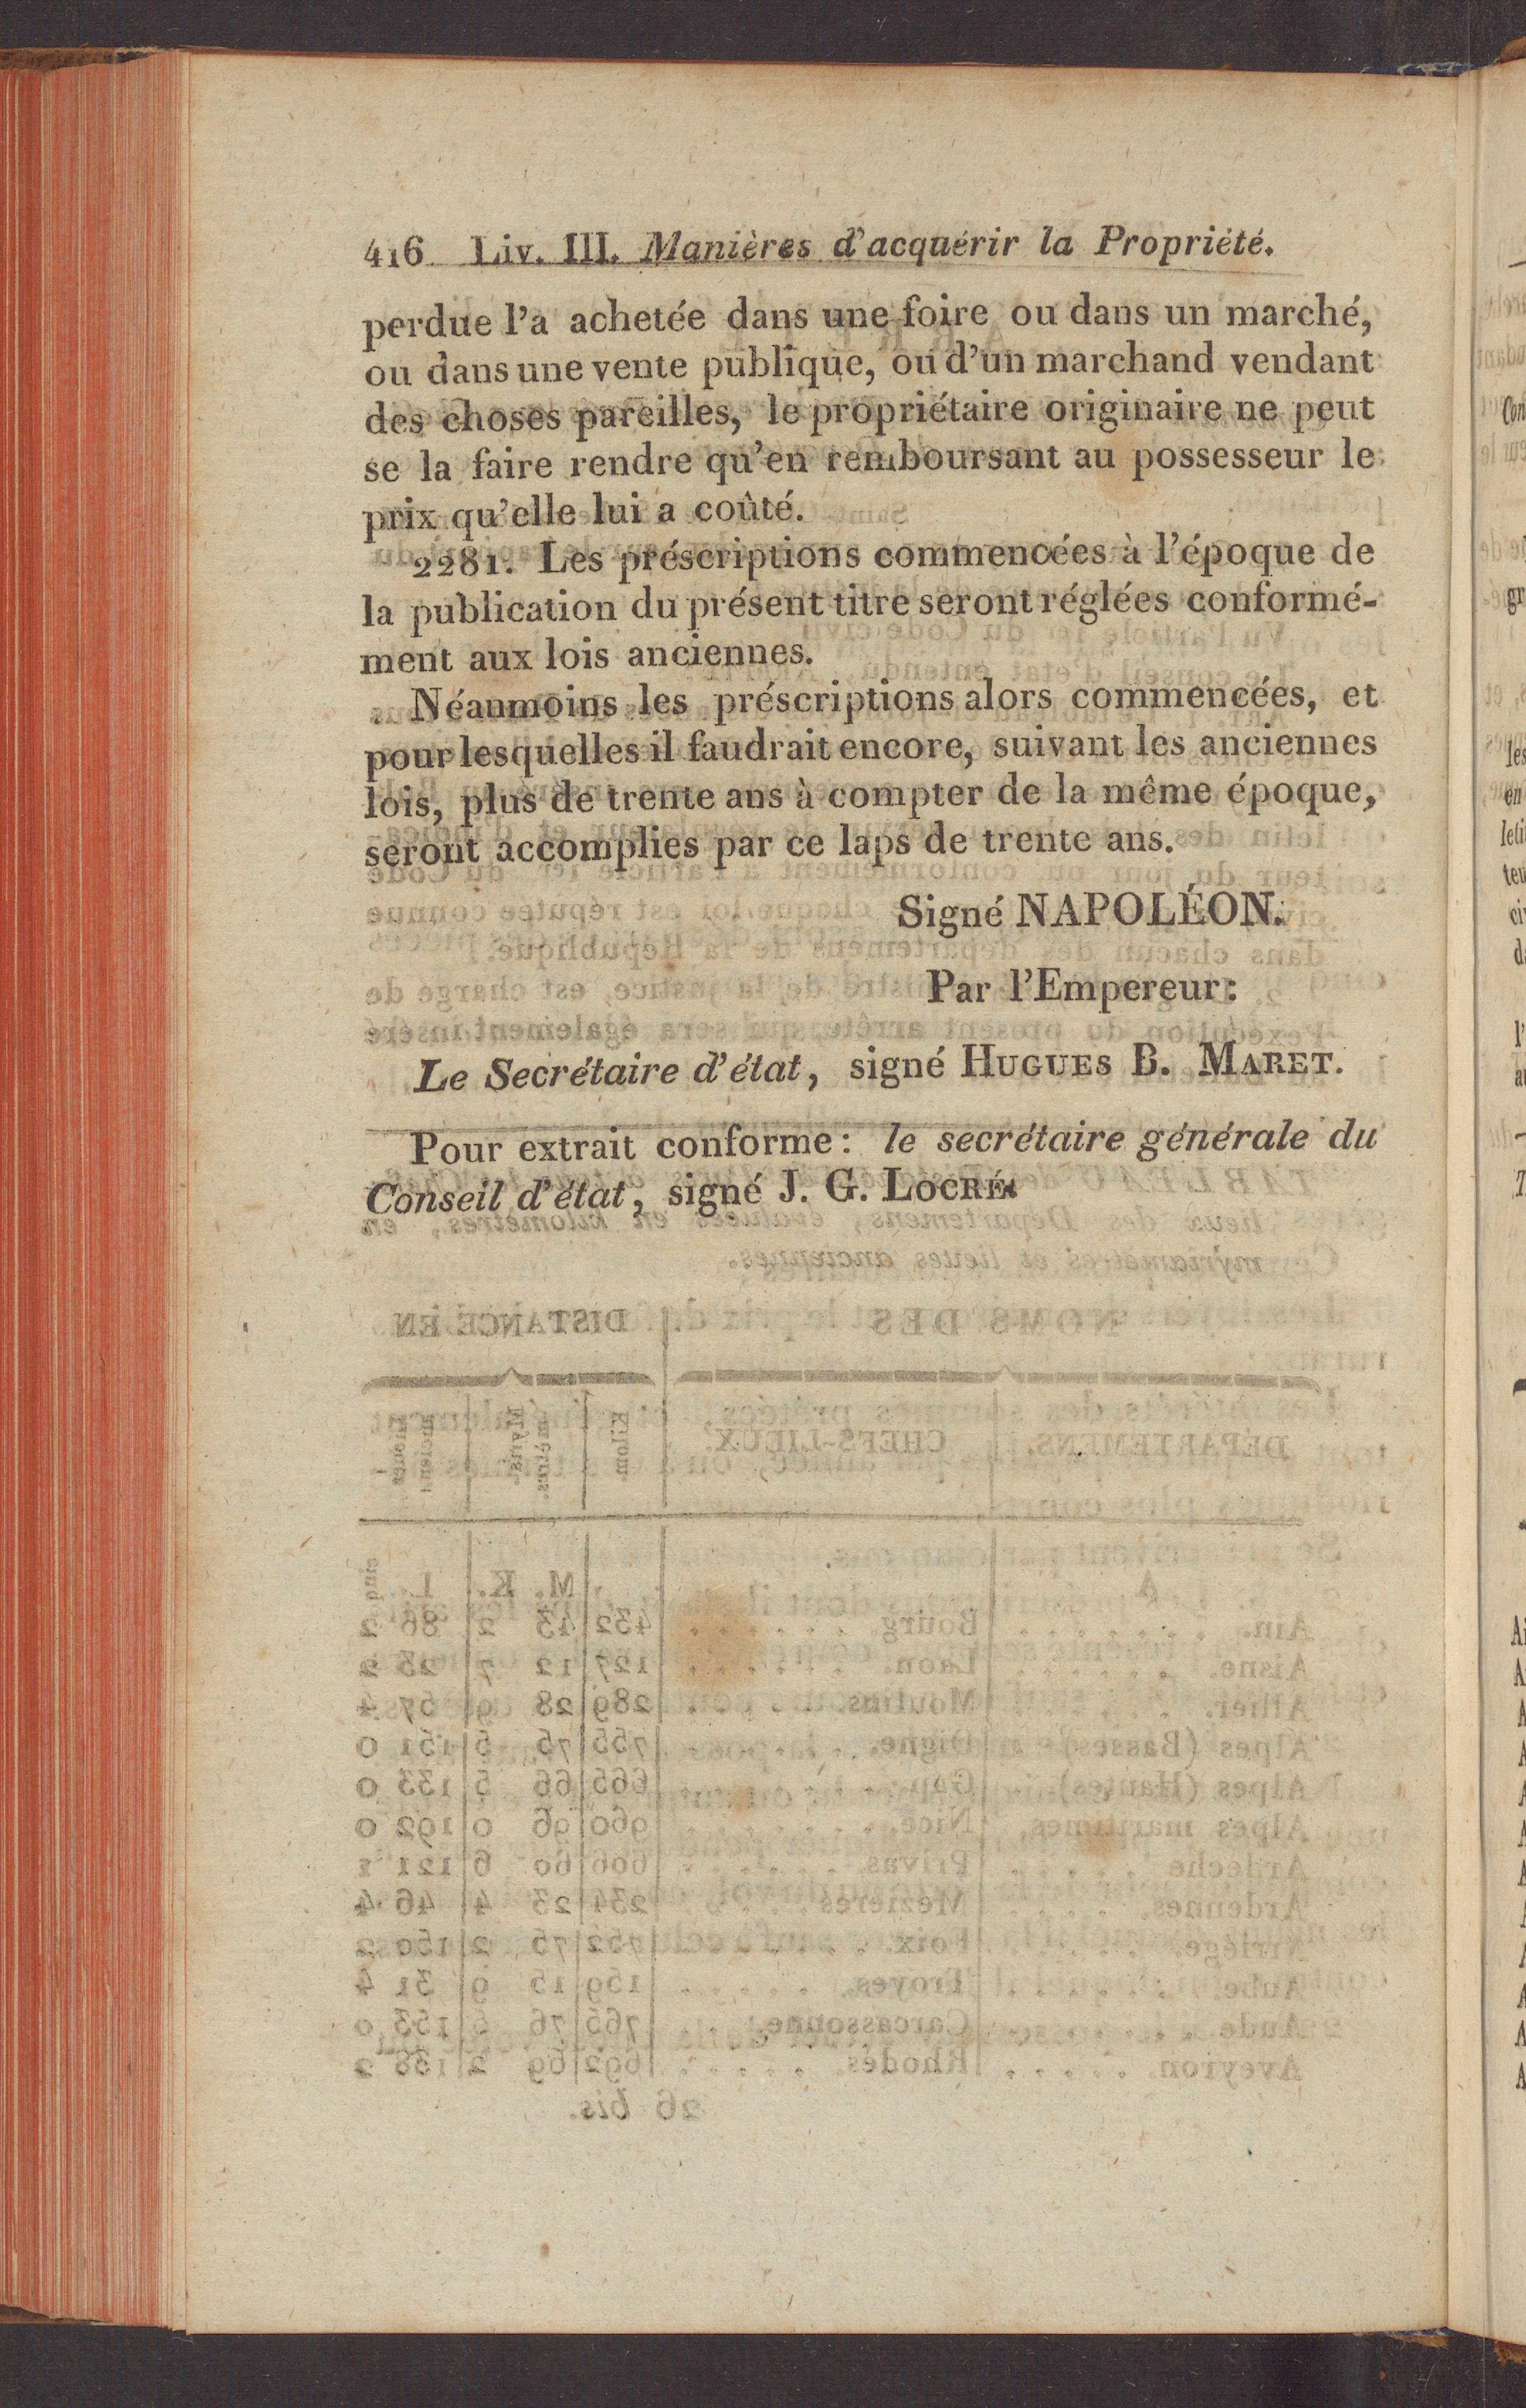 416 Liv. III. Manières d'acquérir la Propriété.
perdue l'a achetée dans une foire ou dans un marché,
ou dans une vente publique, ou d'un marchand vendant
des choses pareilles, le propriétaire originaire ne peut
se la faire rendre qu'en remboursant au possesseur le
prix qu'elle lui a coûté.
2281. Les préscriptions commencées à l'époque de
la publication du présent titre seront réglées conformé-
ment aux lois anciennes.
Néanmoins les préscriptions alors commencées, et
pour lesquelles il faudrait encore, suivant les anciennes
lois, plus de trente ans à compter de la même époque,
seront accomplies par ce laps de trente ans.
Signé NAPOLÉON.
Par l'Empereur:
Le Secrétaire d'état, signé HUGUES B. MARET.
Pour extrait conforme: le secrétaire générale du
Conseil d'état, signé J. G. LOCRÉ.